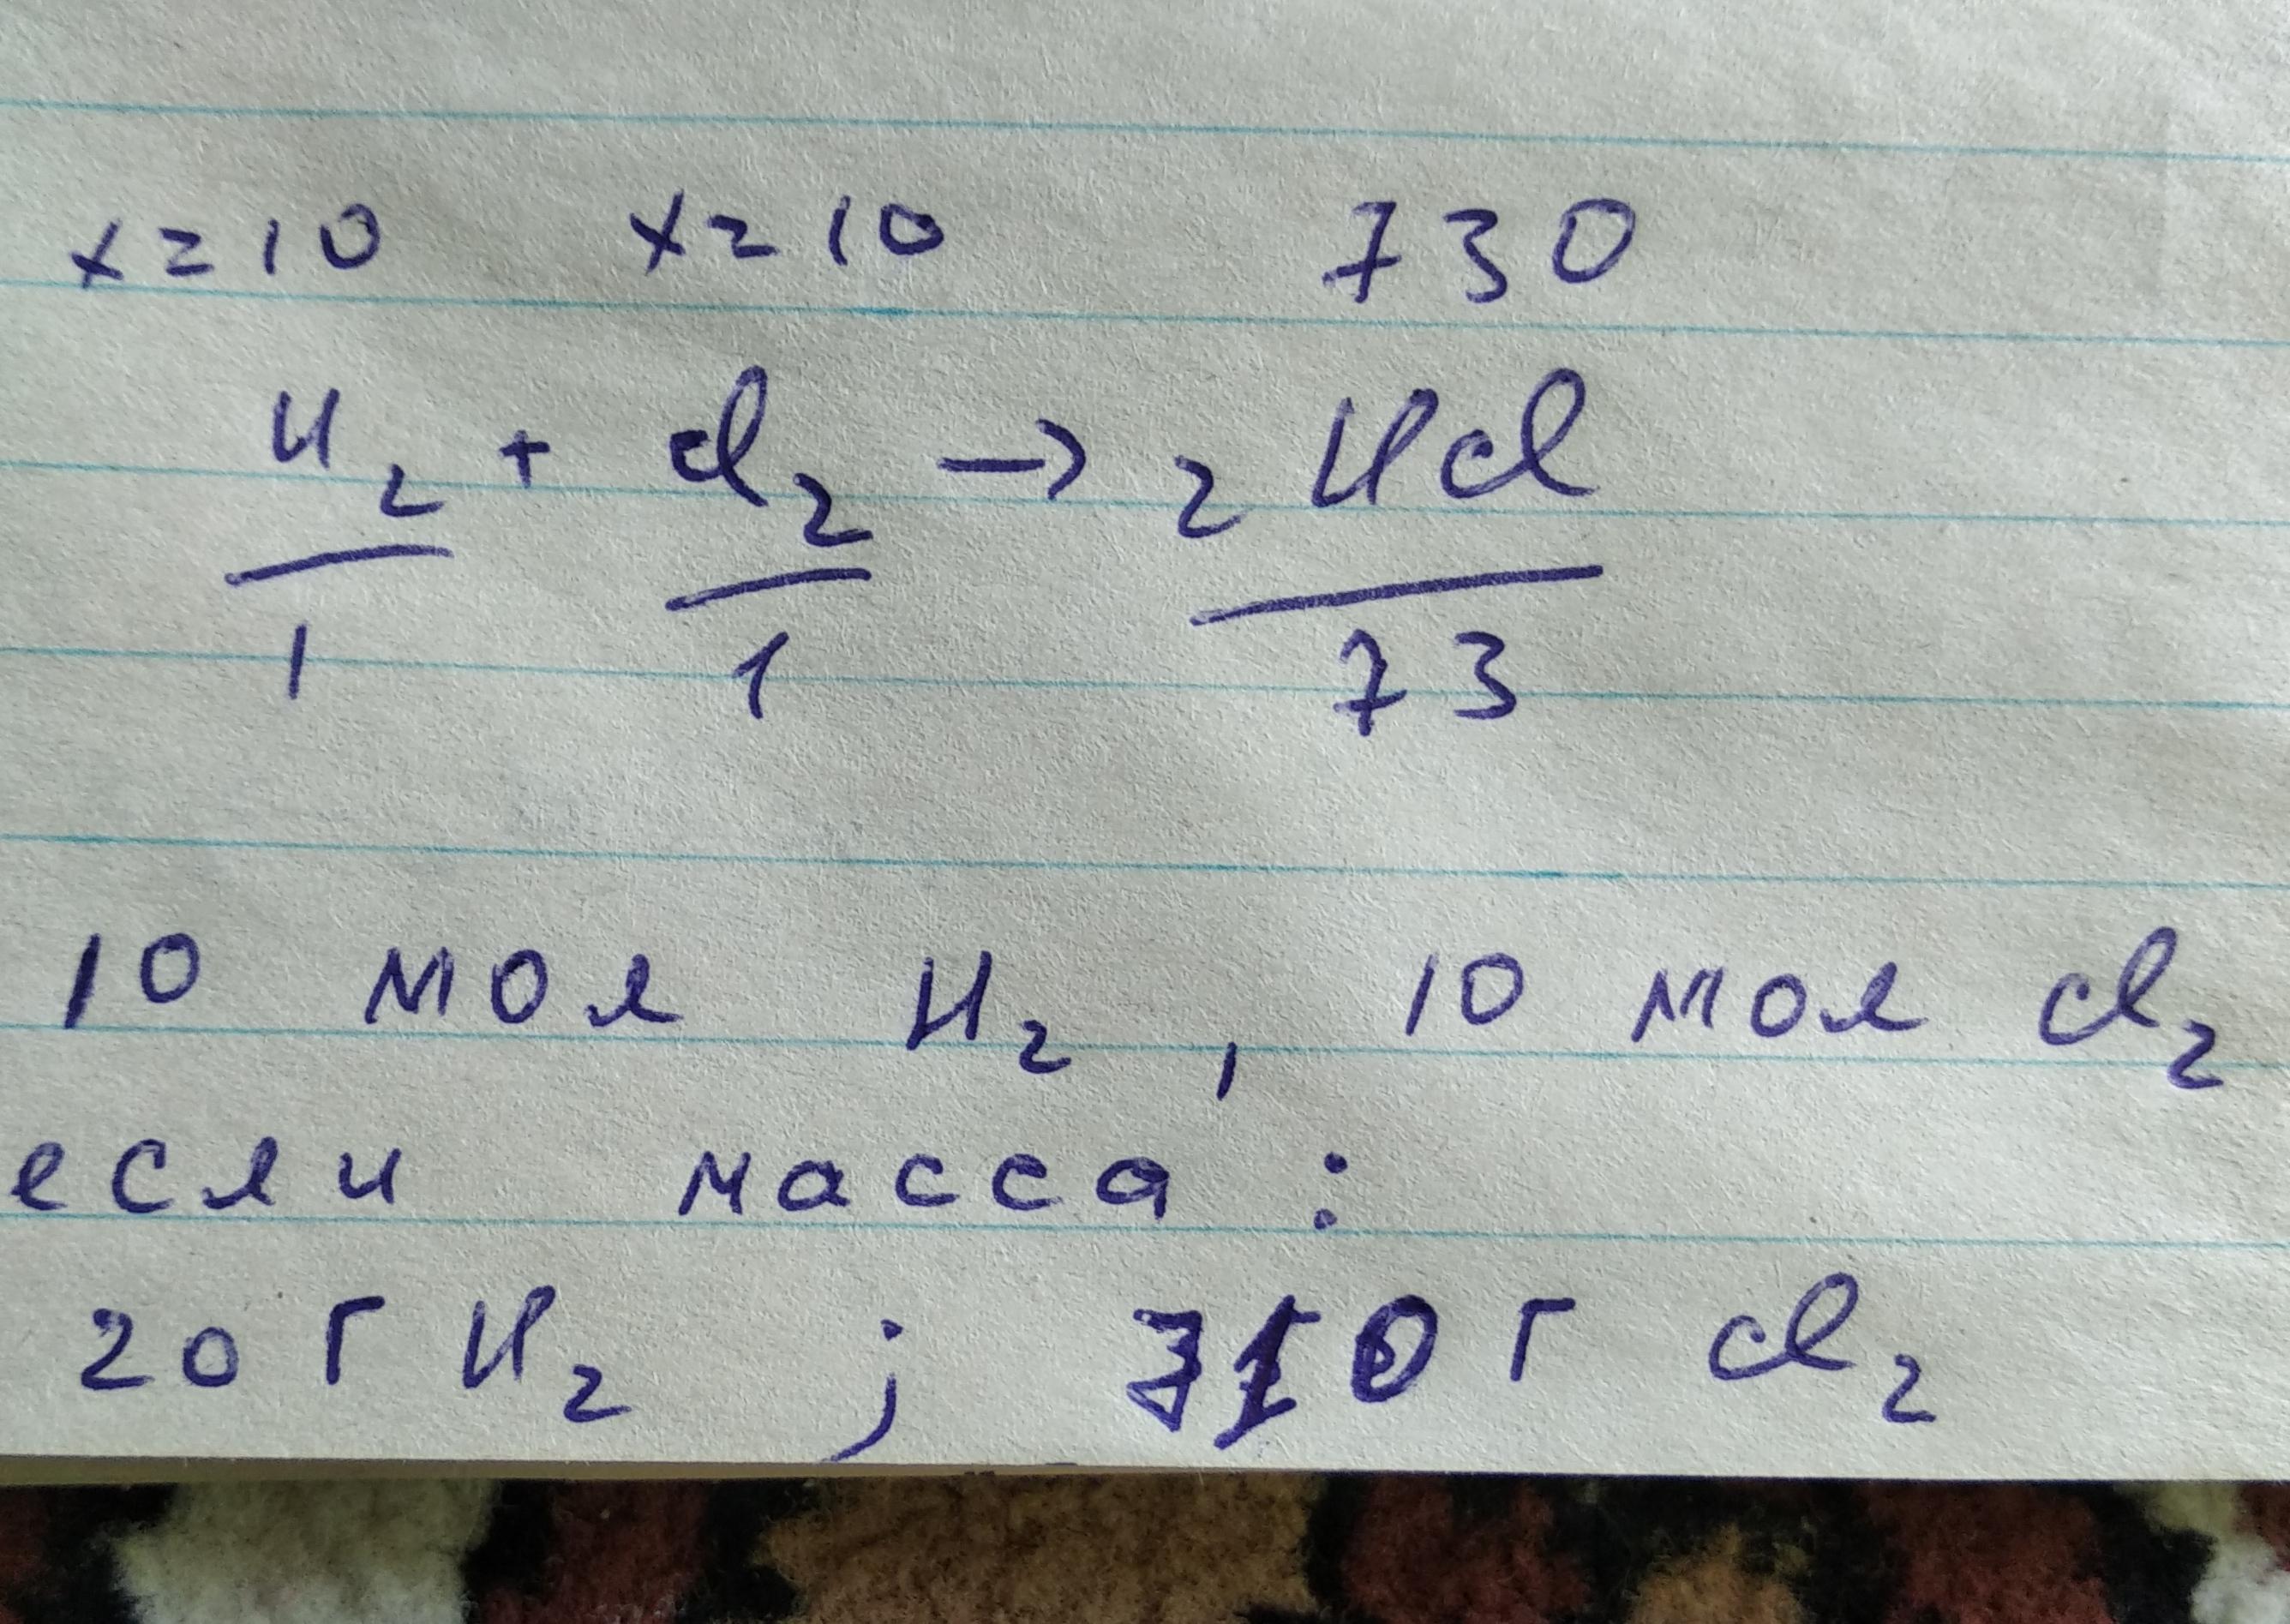 x=10 x=10 730
H₂ + Cl₂ → 2 HCl
1 1 73
10 мол H₂, 10 мол Cl₂
если масса:
20 г H₂ ; 710 г Cl₂